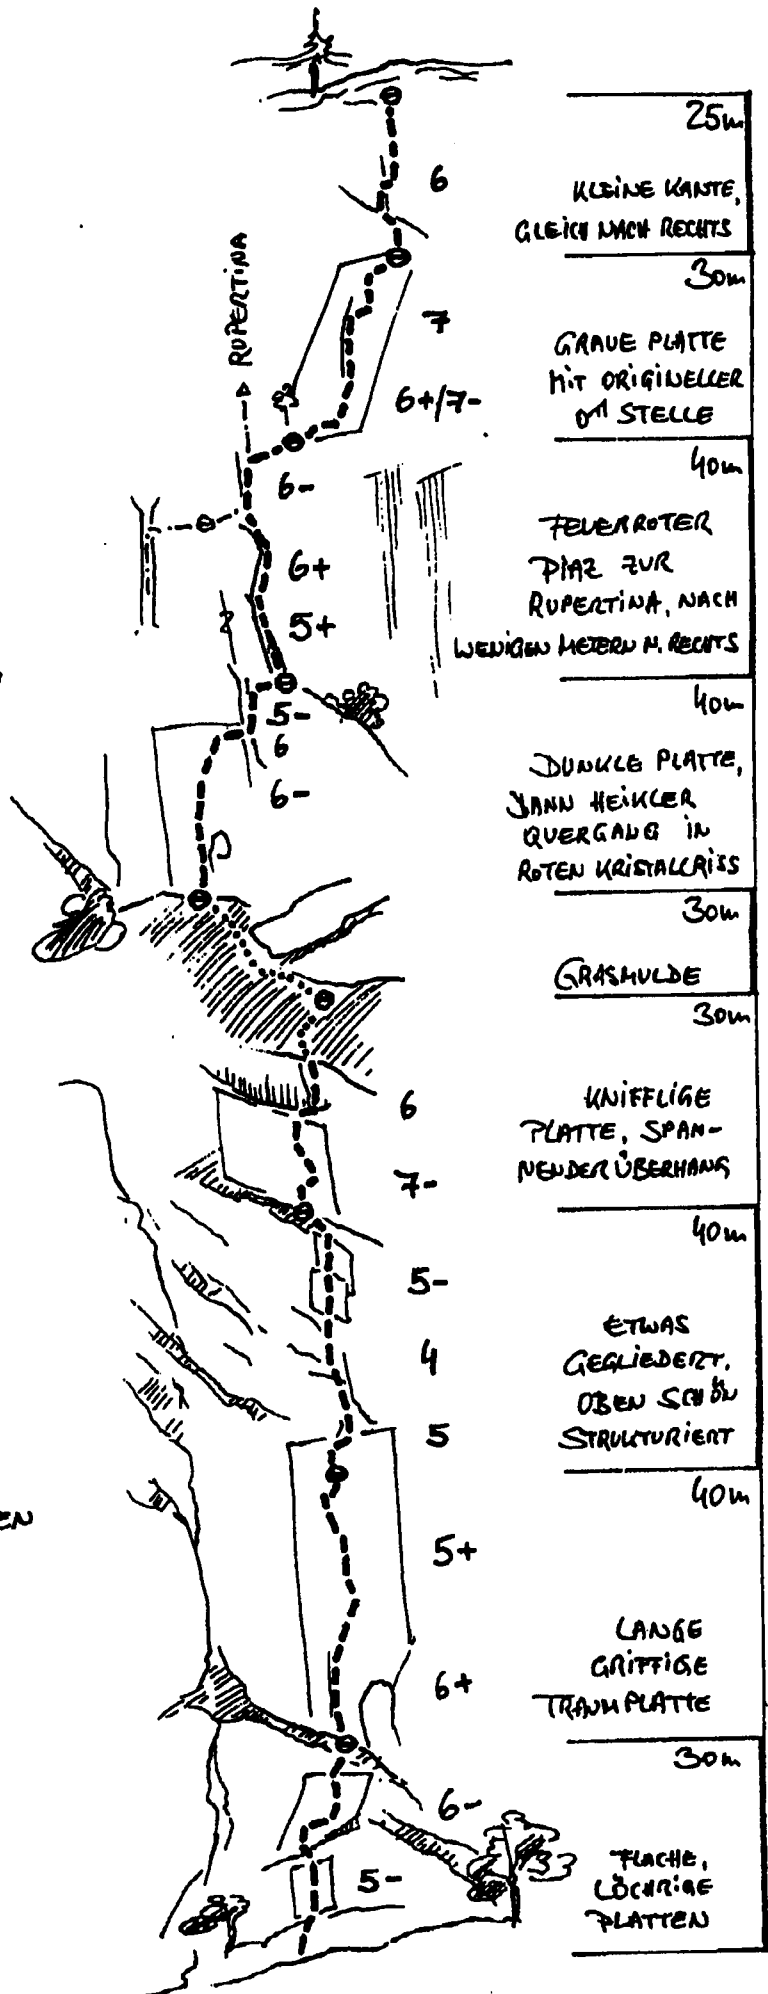 25m
6
KLEINE KANTE,
GLEICH NACH RECHTS
RUPERTINA
30m
7
GRAUE PLATTE
MIT ORIGINELLER
6+/7-
STELLE
40m
6-
FEUERROTER
6+
PIAZ ZUR
5+
RUPERTINA, NACH
WENIGEN METERN N. RECHTS
40m
5-
6
DUNKLE PLATTE,
6-
DANN HEIKLER
QUERGANG IN
ROTEN KRISTALLRISS
30m
GRASMULDE
30m
6
KNIFFLIGE
PLATTE, SPAN-
7-
NENDER ÜBERHANG
40m
5-
ETWAS
4
GEGLIEDERT,
OBEN SCHÖN
5
STRUKTURIERT
40m
EN
5+
LANGE
GRIFFIGE
6+
TRAUMPLATTE
30m
6-
FLACHE,
5-
LÖCHRIGE
PLATTEN